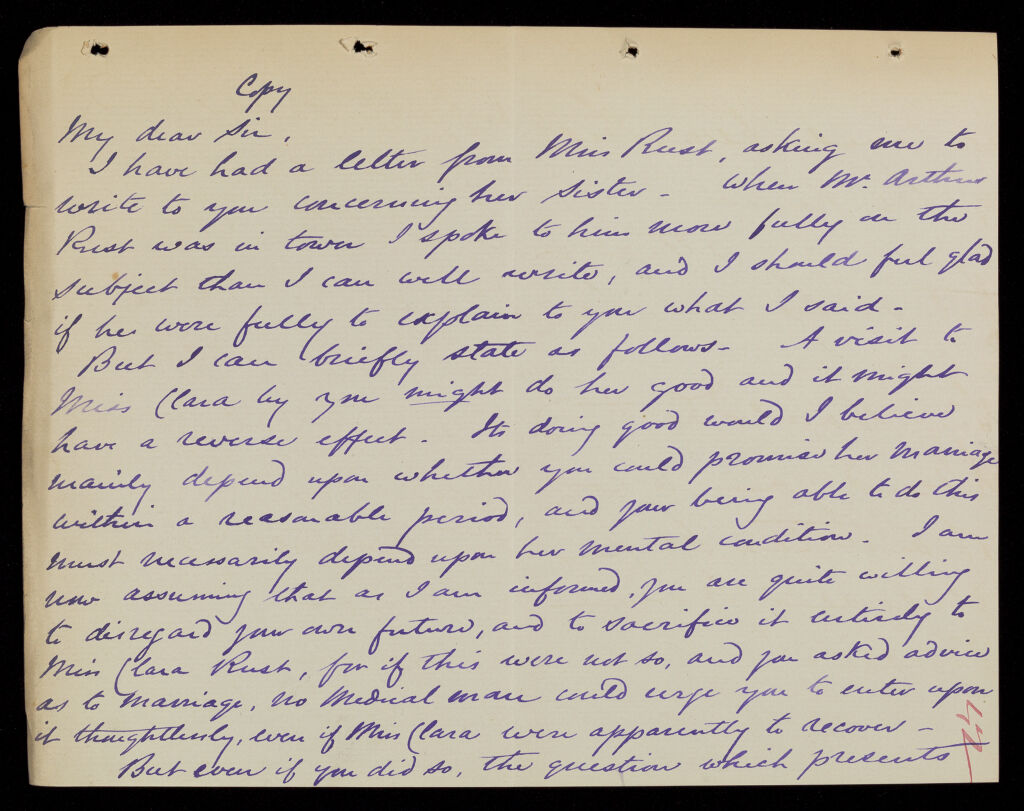 Copy
My dear Sir,
I have had a letter from Miss Rust, asking me to
write to you concerning her sister - When Mr. Arthur
Rust was in town I spoke to him more fully on the
subject than I can well write, and I should feel glad
if he were fully to explain to you what I said -
But I can briefly state as follows - A visit to
Miss Clara by you might do her good and it might
have a reverse effect - Its doing good would I believe
mainly depend upon whether you could promise her marriage
within a reasonable period, and your being able to do this
must necessarily depend upon her mental condition - I am
now assuming that as I am informed, you are quite willing
to disregard your own future, and to sacrifice it entirely to
Miss Clara Rust, for if this were not so, and you asked advice
as to marriage, no medical man could urge you to enter upon
it thoughtlessly, even if Miss Clara were apparently to recover -
But even if you did so, the question which presents